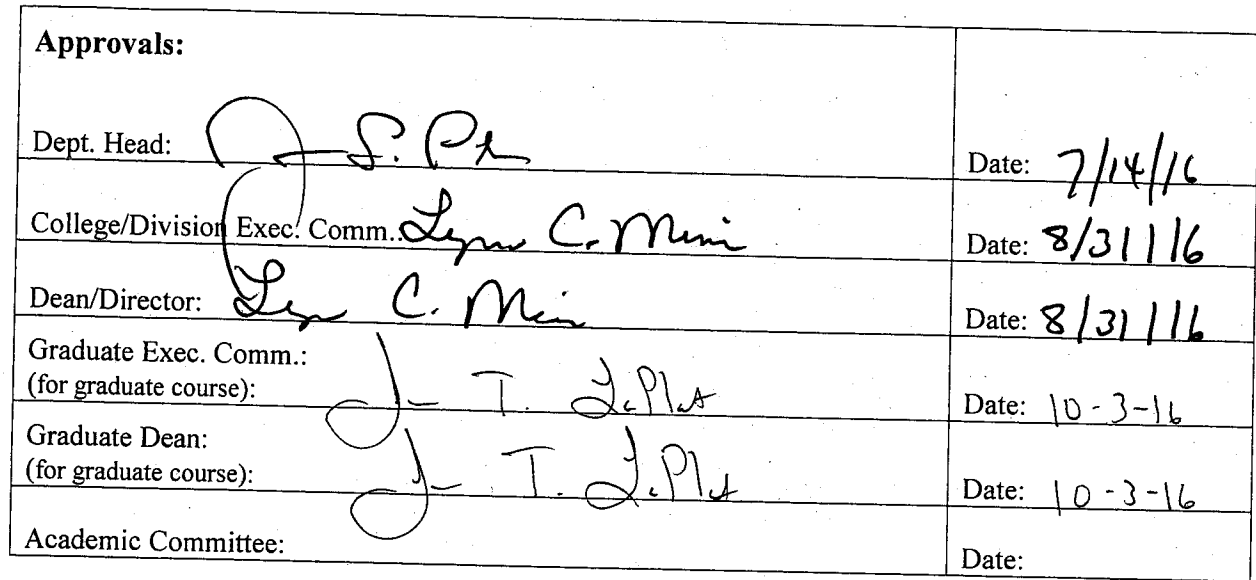 Approvals:
Dept. Head: S. Date: 7/14/16
College/Division Exec. Comm.: Lynn C. Date: 8/31/16
Dean/Director: C. Date: 8/31/16
Graduate Exec. Comm.:
(for graduate course): T. Date: 10-3-16
Graduate Dean:
(for graduate course): T. Date: 10-3-16
Academic Committee: Date: